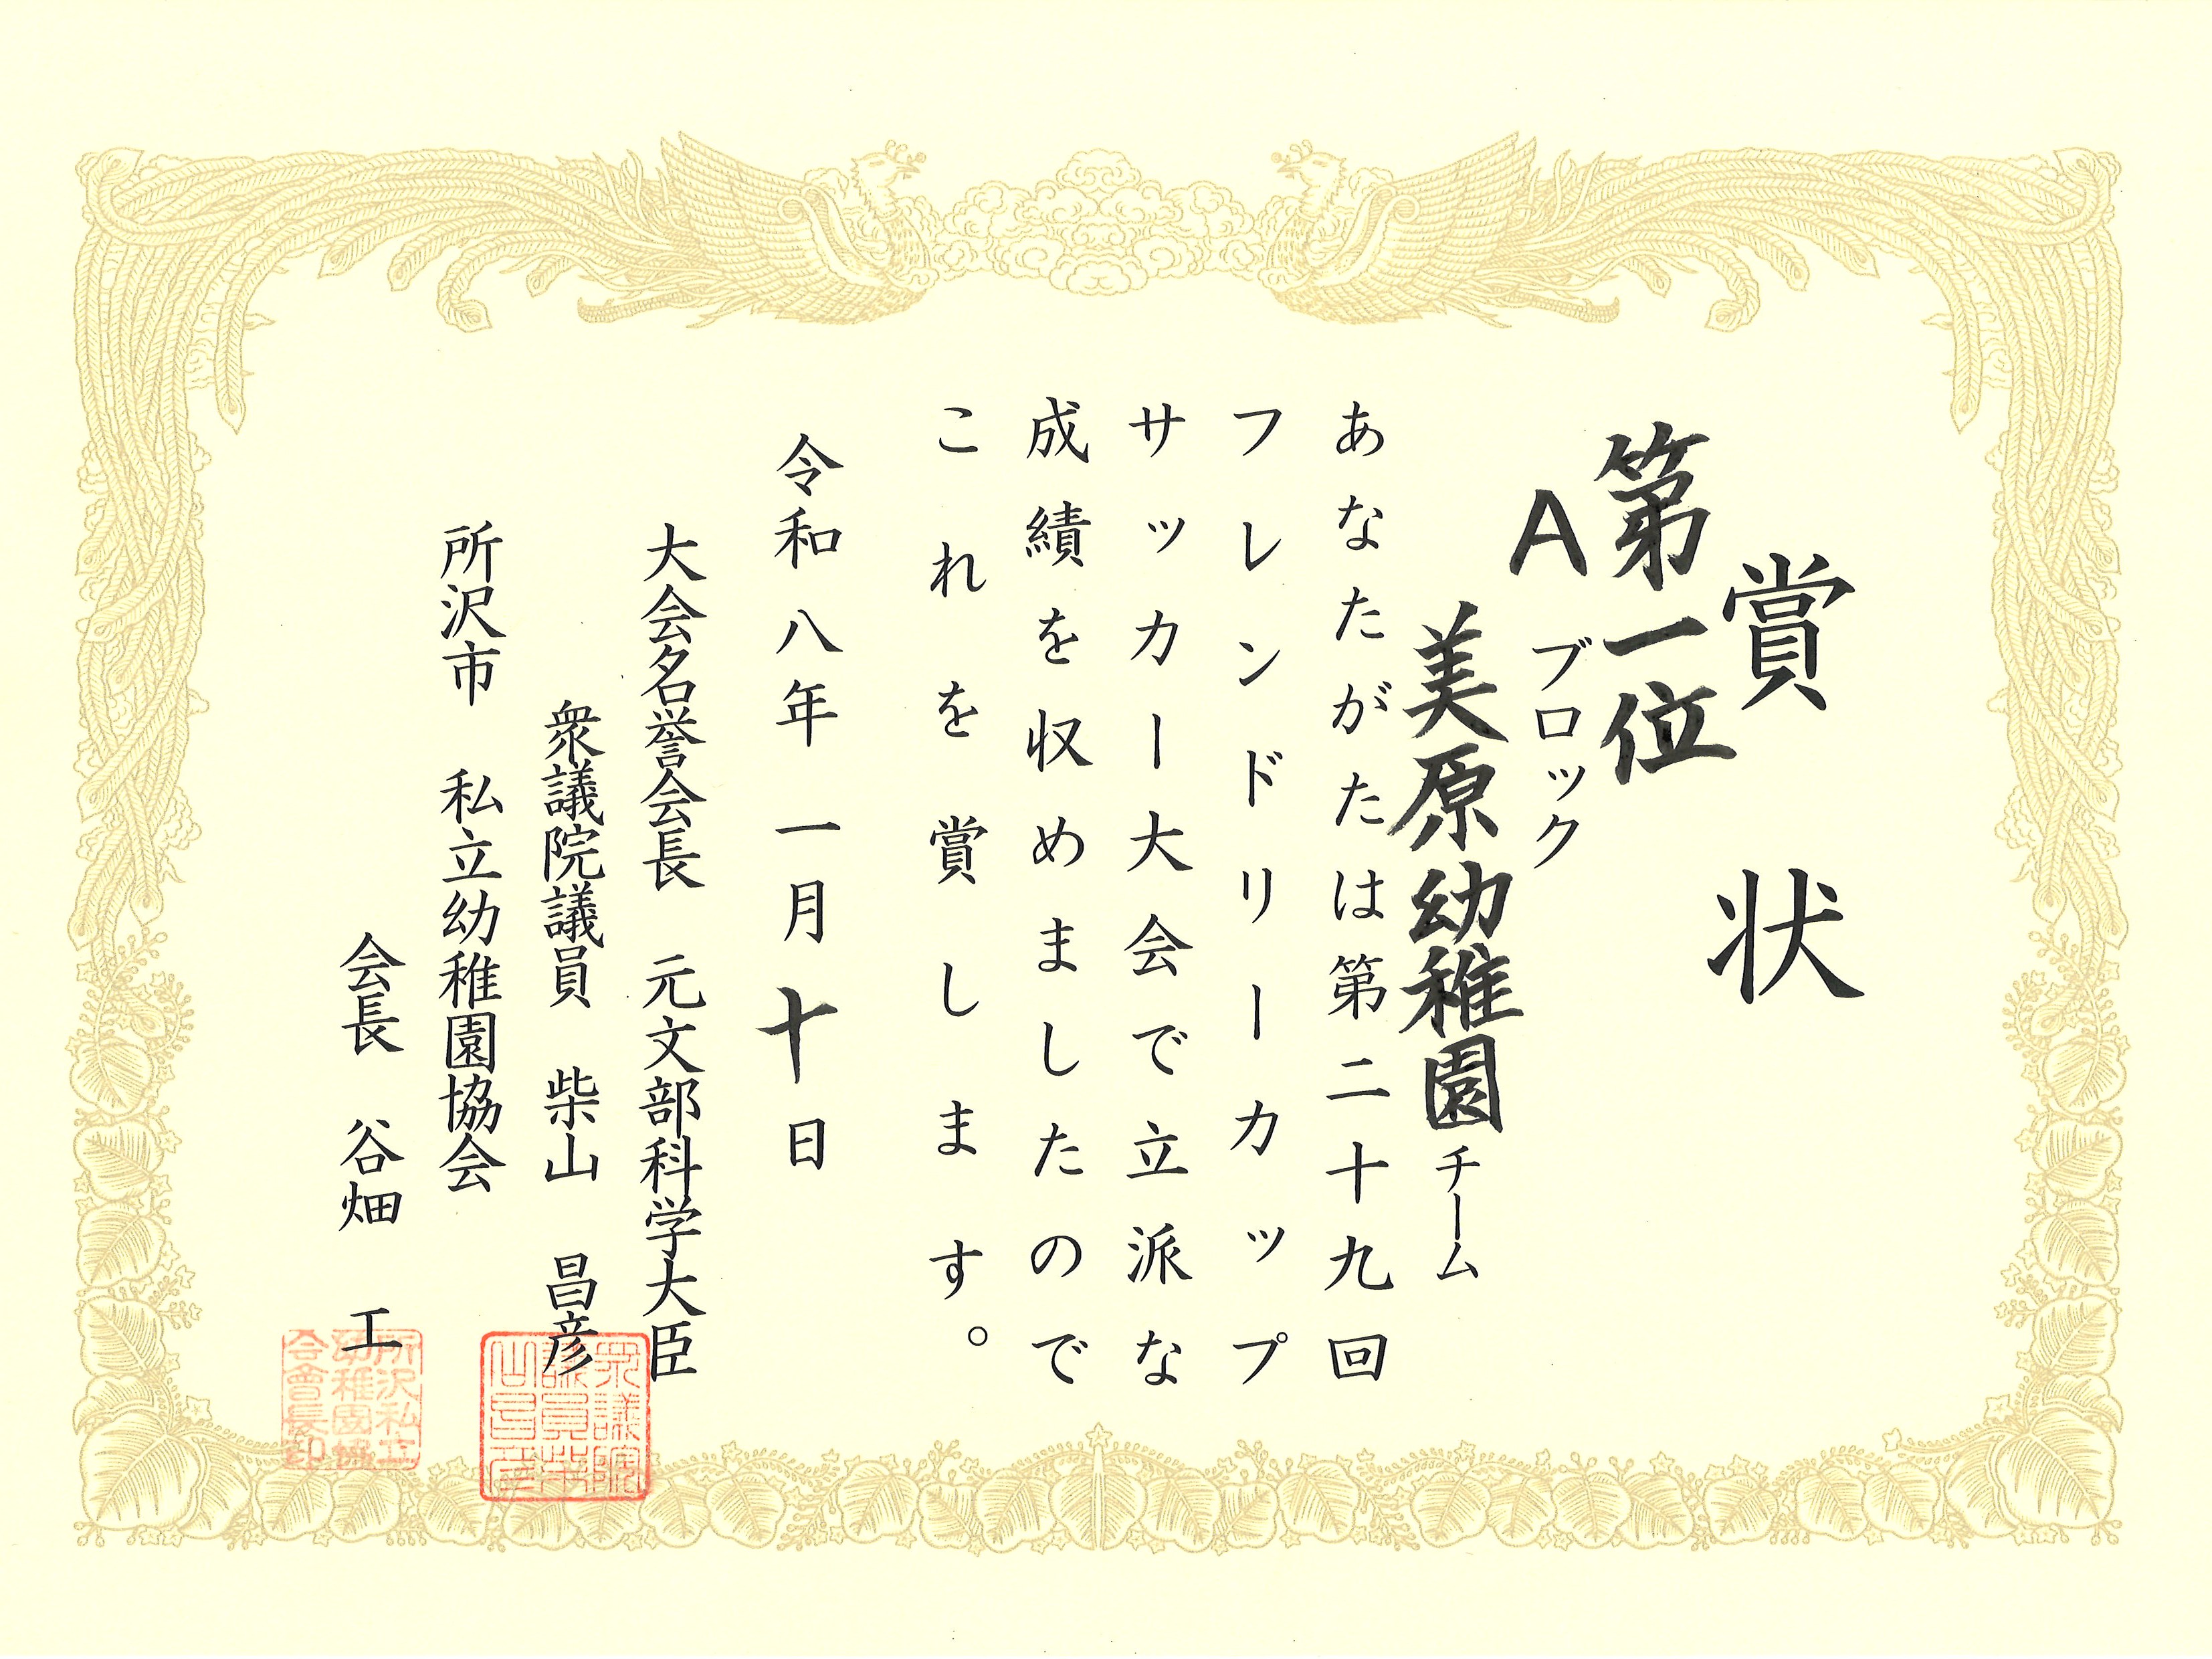 賞状
第一位
Aブロック
美原幼稚園チーム
あなたがたは第二十九回
フレンドリーカップ
サッカー大会で立派な
成績を収めましたので
これを賞します。
令和八年一月十日
大会名誉会長 元文部科学大臣
衆議院議員 柴山 昌彦
所沢市 私立幼稚園協会
会長 谷畑 工
衆議院
議員柴
山昌彦
所沢私立
幼稚園協
会會長印